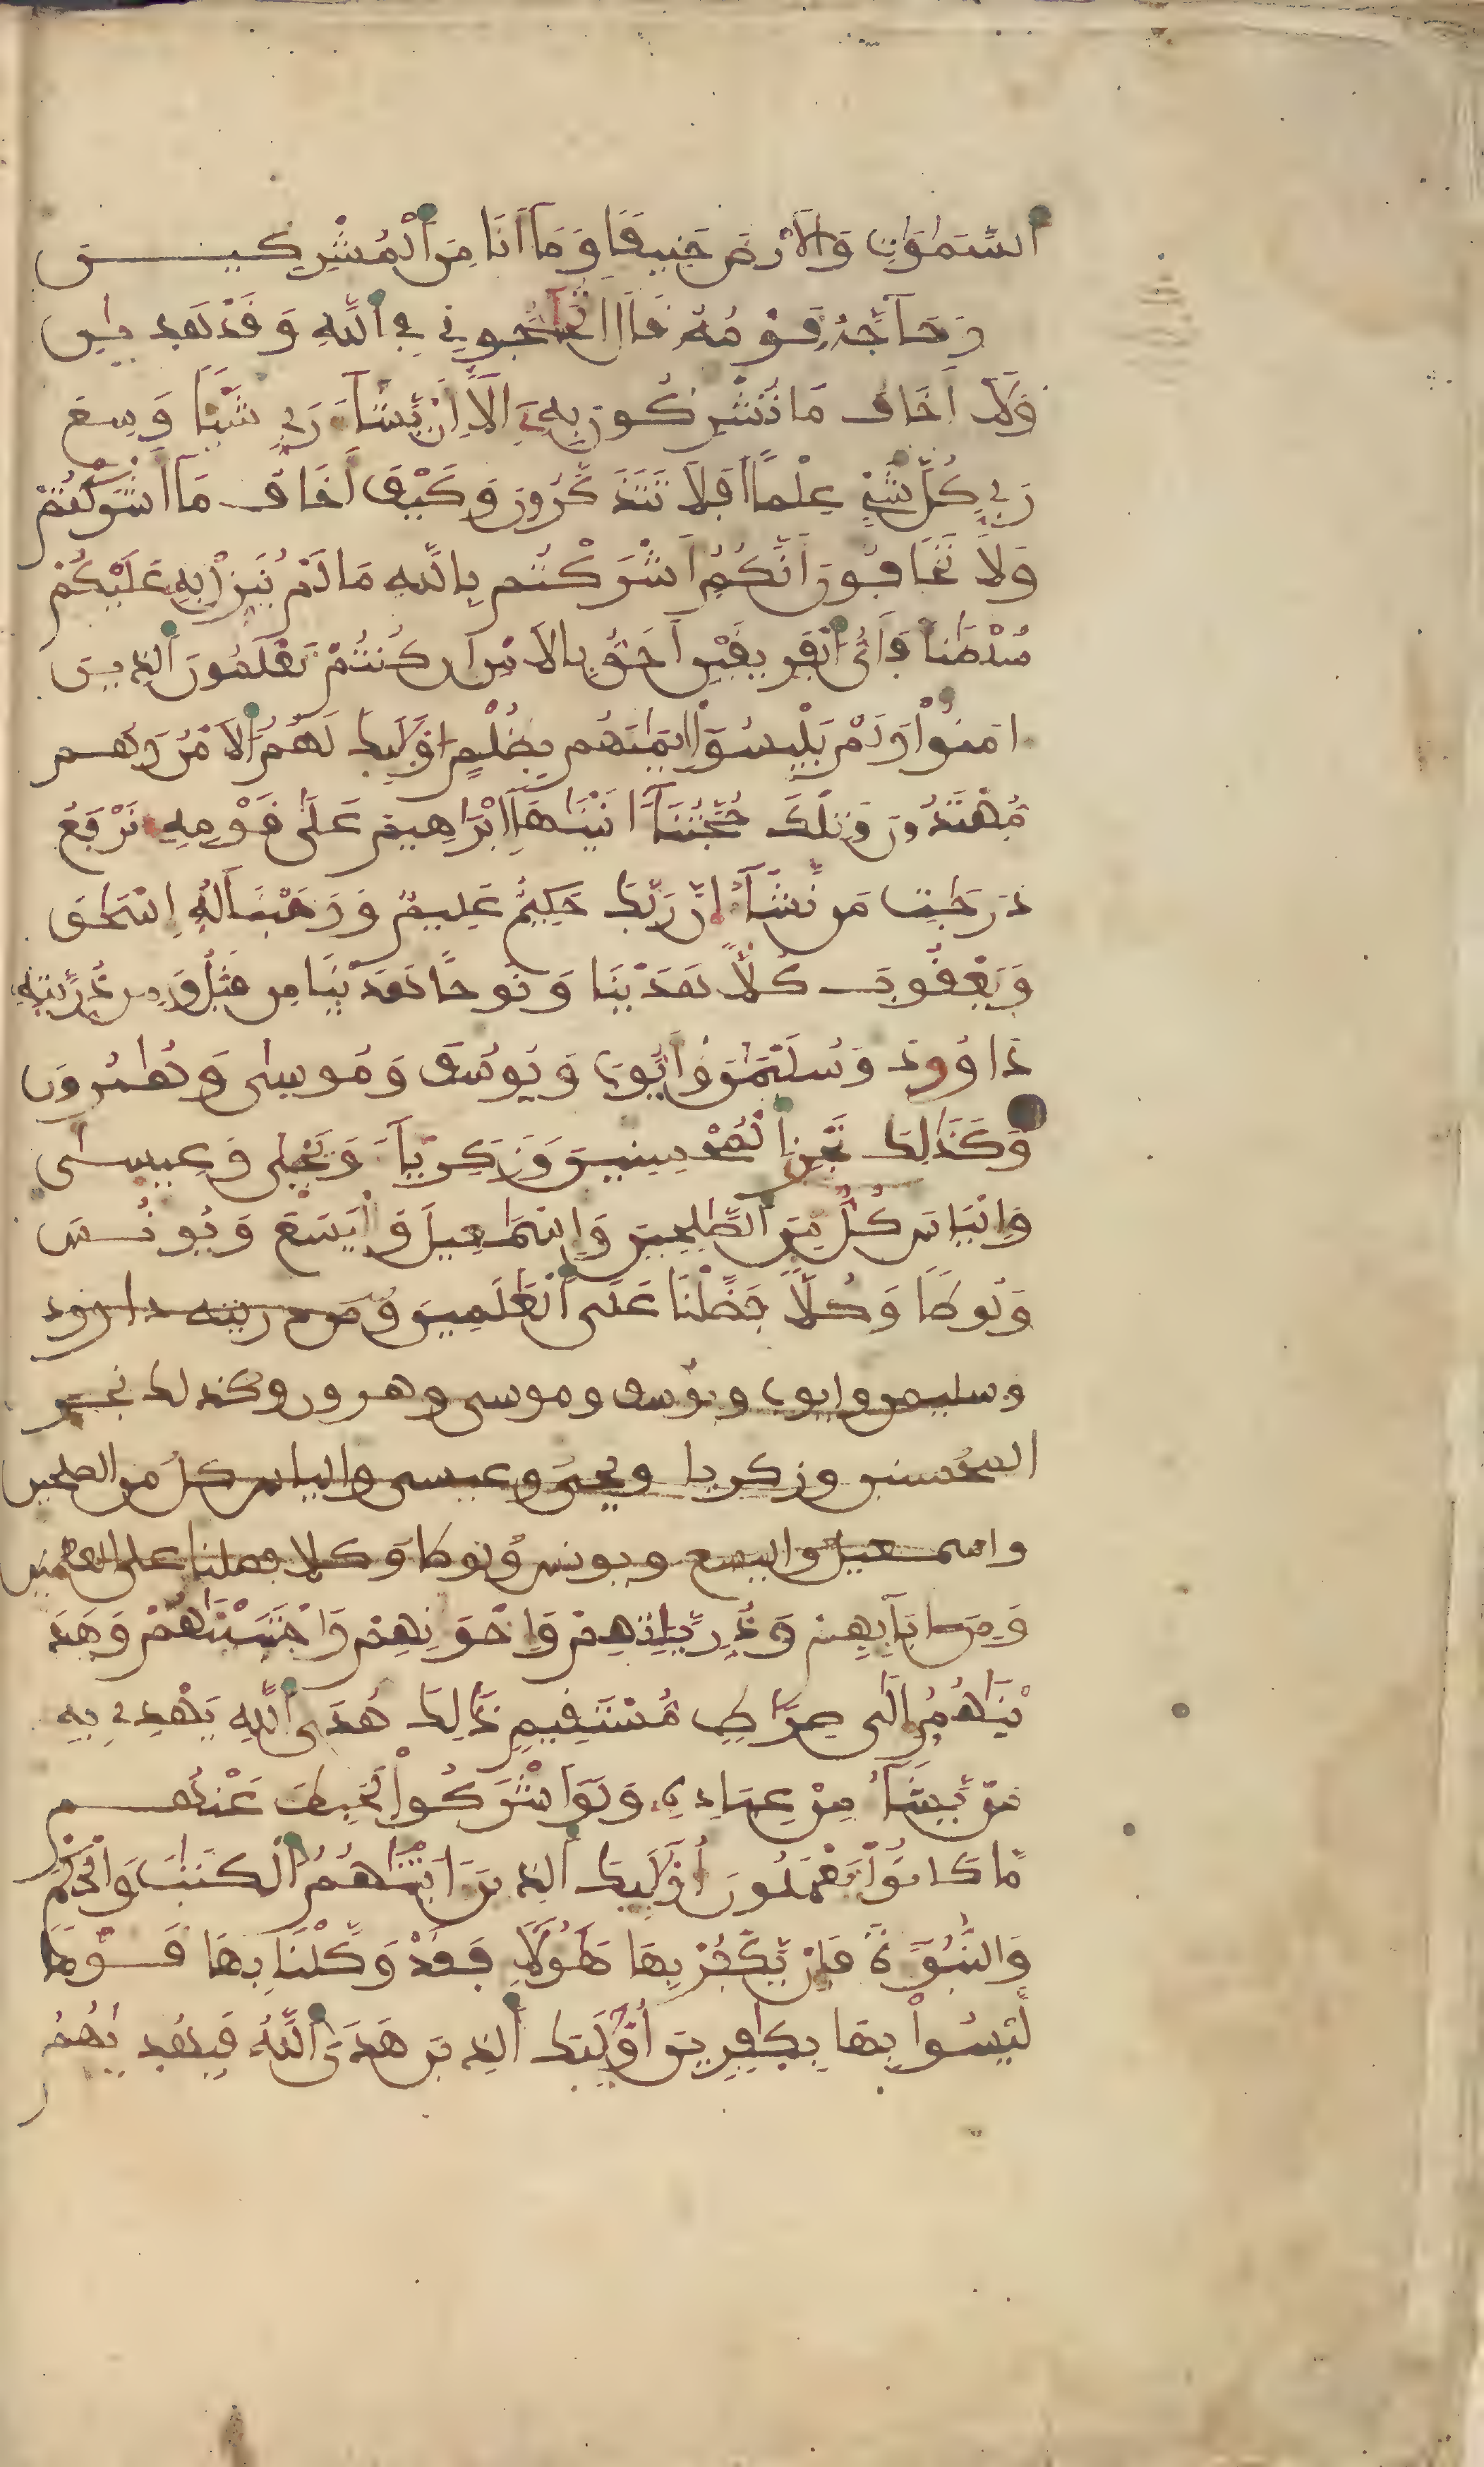 السَّمَٰوَٰتِ وَالَارْضَ حَنِيفًا وَمَآ أَنَا مِنَ الْمُشْرِكِينَ
وَحَآجَّهُ قَوْمُهُ قَالَ أَتُحَٰٓجُّونِي فِي اللَّهِ وَقَدْ هَدَىٰنِ
وَلَآ أَخَافُ مَا تُشْرِكُونَ بِهِۦٓ إِلَّآ أَنْ يَّشَآءَ رَبِّي شَيْـًٔا وَسِعَ
رَبِّي كُلَّ شَيْءٍ عِلْمًا اَفَلَا تَتَذَكَّرُونَ وَكَيْفَ أَخَافُ مَآ أَشْرَكْتُمْ
وَلَا تَخَافُونَ أَنَّكُمُ أَشْرَكْتُم بِاللَّهِ مَا لَمْ يُنَزِّلْ بِهِ عَلَيْكُمْ
سُلْطَٰنًا فَأَيُّ الْفَرِيقَيْنِ أَحَقُّ بِالَامْنِ إِن كُنتُمْ تَعْلَمُونَ الذِينَ
ءامَنُوا وَلَمْ يَلْبِسُوٓا إِيمَٰنَهُم بِظُلْمٍ اوْلَٰٓئِكَ لَهُمُ الَامْنُ وَهُم
مُّهْتَدُونَ وَتِلْكَ حُجَّتُنَآ ءاتَيْنَٰهَآ إِبْرَٰهِيمَ عَلَىٰ قَوْمِهِ نَرْفَعُ
دَرَجَٰتِ مَن نَّشَآءُ إِنَّ رَبَّكَ حَكِيمٌ عَلِيمٌ وَوَهَبْنَا لَهُۥٓ إِسْحَٰقَ
وَيَعْقُوبَ كُلًّا هَدَيْنَا وَنُوحًا هَدَيْنَا مِن قَبْلُ وَمِن ذُرِّيَّتِهِ
دَاوُودَ وَسُلَيْمَٰنَ وَأَيُّوبَ وَيُوسُفَ وَمُوسَىٰ وَهَٰرُونَ
وَكَذَٰلِكَ نَجْزِي الْمُحْسِنِينَ وَزَكَرِيَّآءَ وَيَحْيَىٰ وَعِيسَىٰ
وَإِلْيَاسَ كُلٌّ مِّنَ الصَّٰلِحِينَ وَإِسْمَٰعِيلَ وَالْيَسَعَ وَيُونُسَ
وَلُوطًا وَكُلًّا فَضَّلْنَا عَلَى الْعَٰلَمِينَ وَمن ذريته داوود
وسليمن وايوب ويوسف وموسى وهرون وكذلك نجزي
المحسنين وزكريا ويحيى وعيسى والياس كل من الصلحين
واسمعيل واليسع ويونس ولوطا وكلا فضلنا على العلمين
وَمِنَ ءابَآئِهِمْ وَذُرِّيَّٰتِهِمْ وَإِخْوَٰنِهِمْ وَاجْتَبَيْنَٰهُمْ وَهَدَ
يْنَٰهُمُ إِلَىٰ صِرَٰطٍ مُّسْتَقِيمٍ ذَٰلِكَ هُدَى اللَّهِ يَهْدِي بِهِ
مَنْ يَّشَآءُ مِنْ عِبَادِهِ وَلَوَ اشْرَكُوا لَحَبِطَ عَنْهُم
مَّا كَانُوا يَعْمَلُونَ أُوْلَٰٓئِكَ الذِينَ ءاتَيْنَٰهُمُ الْكِتَٰبَ وَالْحُكْمَ
وَالنُّبُوٓءَةَ فَإِنْ يَّكْفُرْ بِهَا هَٰٓؤُلَآءِ فَقَدْ وَكَّلْنَا بِهَا قَوْمًا
لَّيْسُوا بِهَا بِكَٰفِرِينَ أُوْلَٰٓئِكَ الذِينَ هَدَى اللَّهُ فَبِهُدَىٰهُمُ